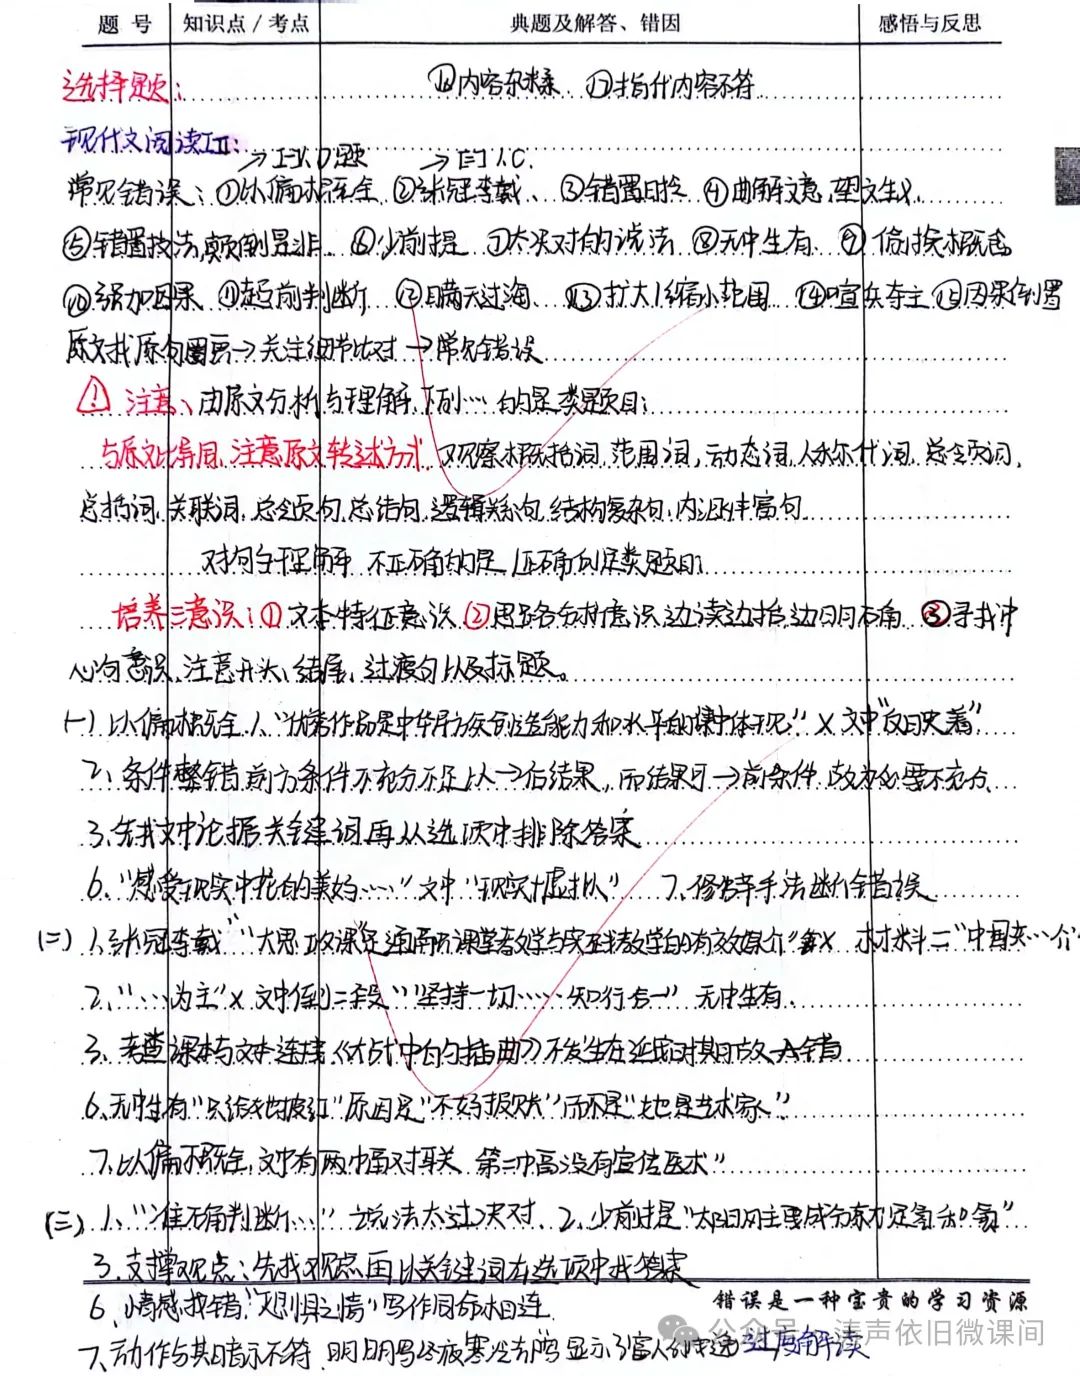 题 号 知识点 / 考点 典题及解答、错因 感悟与反思
选择题: ⑯内容杂糅 ⑰指代内容不符
现代文阅读ⅠⅡ:
常见错误:①以偏概全 ②张冠李戴、③错置时控 ④曲解文意,望文生义
⑤错置技法,颠倒是非 ⑥少前提 ⑦太绝对的说法 ⑧无中生有、⑨偷换概念
⑩强加因果 ⑪超前判断 ⑫瞒天过海、⑬扩大\缩小范围 ⑭喧宾夺主 ⑮因果倒置
原文找原句圈画→关注细节比对→常见错误
! 注意、由原文分析与理解,下列…的是类题目:
与原文比异同,注意原文转述方式 观察概括词,范围词,动态词,人称代词,总领词,
总括词,关联词,总领句,总结句,逻辑关系句,结构复杂句,内涵丰富句
对句子理解,不正确的是\正确的是类题目:
培养三意识:①文本特征意识 ②思路分析意识,边读边括,边明确 ③寻找中
心句意识,注意开头、结尾,过渡句以及标题。
(一)以偏概全 1、“优秀作品是中华民族创造能力和水平的集中体现” × 文中“反映着”
2、条件整错,前方条件不充分不足以→后结果,而结果可→前条件,故为必要不充分、
3、先找文中论据关键词再从选项中排除答案
6、“感受现实中花的美妙……” 文中“现实+虚拟” 7、修辞手法判断错误
(二) 1、张冠李戴 “大思政课”是 教学与实践教学的有效媒介” × 材料二“中国共…介”
2、“…为主”× 文中倒二段“坚持一切……知行合一” 无中生有、
3、考查课本与文本连接《大战中的插曲》不发生在延安时期故A错
6、无中生有 原因是“不好 ”而不是“也是艺术家”
7、以偏概全,文中有两幅对联 第二幅没有宣传医术”
(三) 1、“准确判断……” 说法太过绝对、 2、少前提“太阳风主要成分 是氢和氦”
3、支撑观点:先找观点再以关键词在选项中找答案
6、情感找错“ 之情”写作同命相连
7、动作与其暗示不符,明明写 显示了富人的 过度解读
错误是一种宝贵的学习资源
公众号 · 涛声依旧微课间